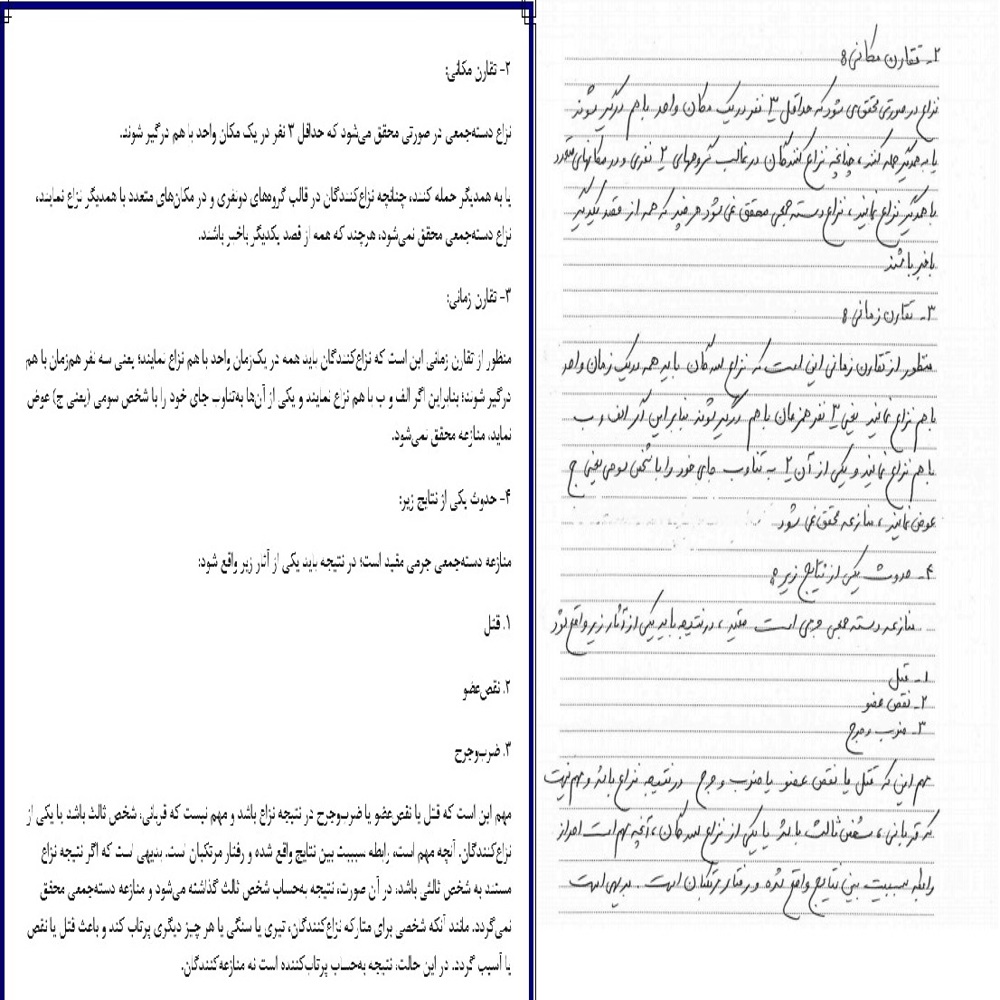 ۲- تقارن مکانی:
نزاع در صورتی محقق می شود که حداقل ۳ نفر در یک مکان واحد با هم درگیر شوند
یا به همدیگر حمله کنند، چنانچه نزاع کنندگان در قالب گروههای ۲ نفری و در مکانهای متعدد
با همدیگر نزاع نمایند، نزاع دسته جمعی محقق نمی شود هر چند که همه از قصد یکدیگر
باخبر باشند
۳- تقارن زمانی:
منظور از تقارن زمانی این است که نزاع کنندگان باید همه در یک زمان واحد
با هم نزاع نمایند یعنی ۳ نفر همزمان با هم درگیر شوند بنابراین اگر الف و ب
با هم نزاع نمایند و یکی از آن ۲ به تناوب جای خود را با شخص سومی یعنی ج
عوض نمایند، منازعه محقق نمی شود.
۴- حدوث یکی از نتایج زیر:
منازعه دسته جمعی جرمی است مقید، در نتیجه باید یکی از آثار زیر واقع شود
۱- قتل
۲- نقص عضو
۳- ضرب و جرح
مهم این که قتل یا نقص عضو یا ضرب و جرح در نتیجه نزاع باشد و مهم نیست
که قربانی، شخص ثالث باشد یا یکی از نزاع کنندگان، آنچه مهم است احراز
رابطه سببیت بین نتایج واقع شده و رفتار مرتکبان است. بدیهی است
۲- تقارن مکانی:
نزاع دسته‌جمعی در صورتی محقق می‌شود که حداقل ۳ نفر در یک مکان واحد با هم درگیر شوند.
یا به همدیگر حمله کنند، چنانچه نزاع‌کنندگان در قالب گروه‌های دونفری و در مکان‌های متعدد با همدیگر نزاع نمایند،
نزاع دسته‌جمعی محقق نمی‌شود، هرچند که همه از قصد یکدیگر باخبر باشند.
۳- تقارن زمانی:
منظور از تقارن زمانی این است که نزاع‌کنندگان باید همه در یک‌زمان واحد با هم نزاع نمایند؛ یعنی سه نفر هم‌زمان با هم
درگیر شوند؛ بنابراین اگر الف و ب با هم نزاع نمایند و یکی از آن‌ها به‌تناوب جای خود را با شخص سومی (یعنی ج) عوض
نماید، منازعه محقق نمی‌شود.
۴- حدوث یکی از نتایج زیر:
منازعه دسته‌جمعی جرمی مقید است؛ در نتیجه باید یکی از آثار زیر واقع شود:
۱. قتل
۲. نقص‌عضو
۳. ضرب‌وجرح
مهم این است که قتل یا نقص‌عضو یا ضرب‌وجرح در نتیجه نزاع باشد و مهم نیست که قربانی، شخص ثالث باشد یا یکی از
نزاع‌کنندگان. آنچه مهم است، رابطه سببیت بین نتایج واقع شده و رفتار مرتکبان است. بدیهی است که اگر نتیجه نزاع
مستند به شخص ثالثی باشد، در آن صورت، نتیجه به‌حساب شخص ثالث گذاشته می‌شود و منازعه دسته‌جمعی محقق
نمی‌گردد. مانند آنکه شخصی برای متارکه نزاع‌کنندگان، تیری یا سنگی یا هر چیز دیگری پرتاب کند و باعث قتل یا نقص
یا آسیب گردد. در این حالت، نتیجه به‌حساب پرتاب‌کننده است نه منازعه‌کنندگان.